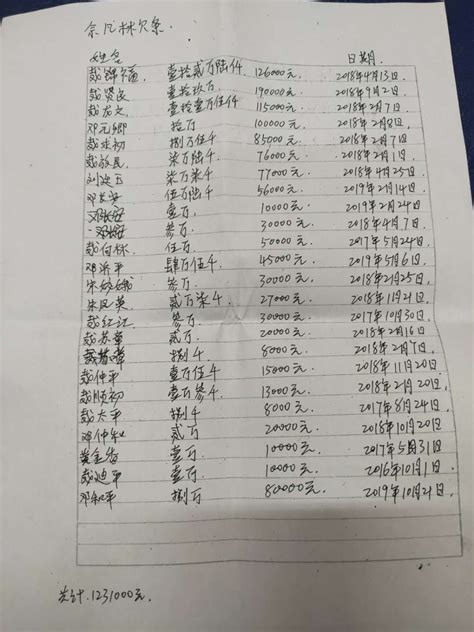 余凡林欠条.
姓名 日期.
戴锦涵 壹拾贰万陆仟 126000元. 2018年4月13日.
戴贤良 壹拾玖万 190000元. 2018年9月2日.
戴龙文 壹拾壹万伍仟 115000元. 2018年2月7日.
邓元卿 拾万 100000元. 2018年2月8日.
戴求初 捌万伍千 85000元. 2018年2月7日
戴放民. 柒万陆千. 76000元. 2018年2月1日.
刘建玉 柒万柒千 77000元. 2018年4月25日.
邓长安 伍万陆千. 56000元 2019年2月14日.
邓 壹万. 10000元. 2019年2月24日
邓 叁万. 30000元. 2018年4月7日.
戴向林. 伍万. 50000元. 2017年5月24日
邓沂平 肆万伍仟. 45000元 2019年5月6日.
宋姣娥 叁万. 30000元 2018年2月25日.
朱凤英. 贰万柒千. 27000元. 2018年1月21日.
戴红江. 叁万. 30000元. 2017年10月30日.
戴苏 贰万. 20000元. 2018年2月16日.
戴苏 捌千. 8000元. 2018年2月7日.
戴仲平. 壹万伍千 15000元. 2018年11月20日
戴顺初 壹万叁千. 13000元. 2018年2月20日.
戴太平. 捌千. 8000元. 2017年8月24日.
邓仲 贰万. 20000元 2018年10月20日
黄金香 壹万. 10000元. 2017年5月31日
戴迪平 壹万. 10000元. 2016年10月1日.
邓和平 捌万 80000元. 2019年10月21日.
共计.1231000元.